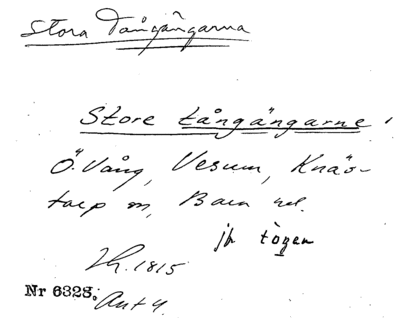 Stora Tångängarna
Store tångängarne
Ö. Vång, Vesum, Knäs-
torp m, Bara hd.
jfr tògen
Lh. 1815
Nr 6328.
Ant 4.